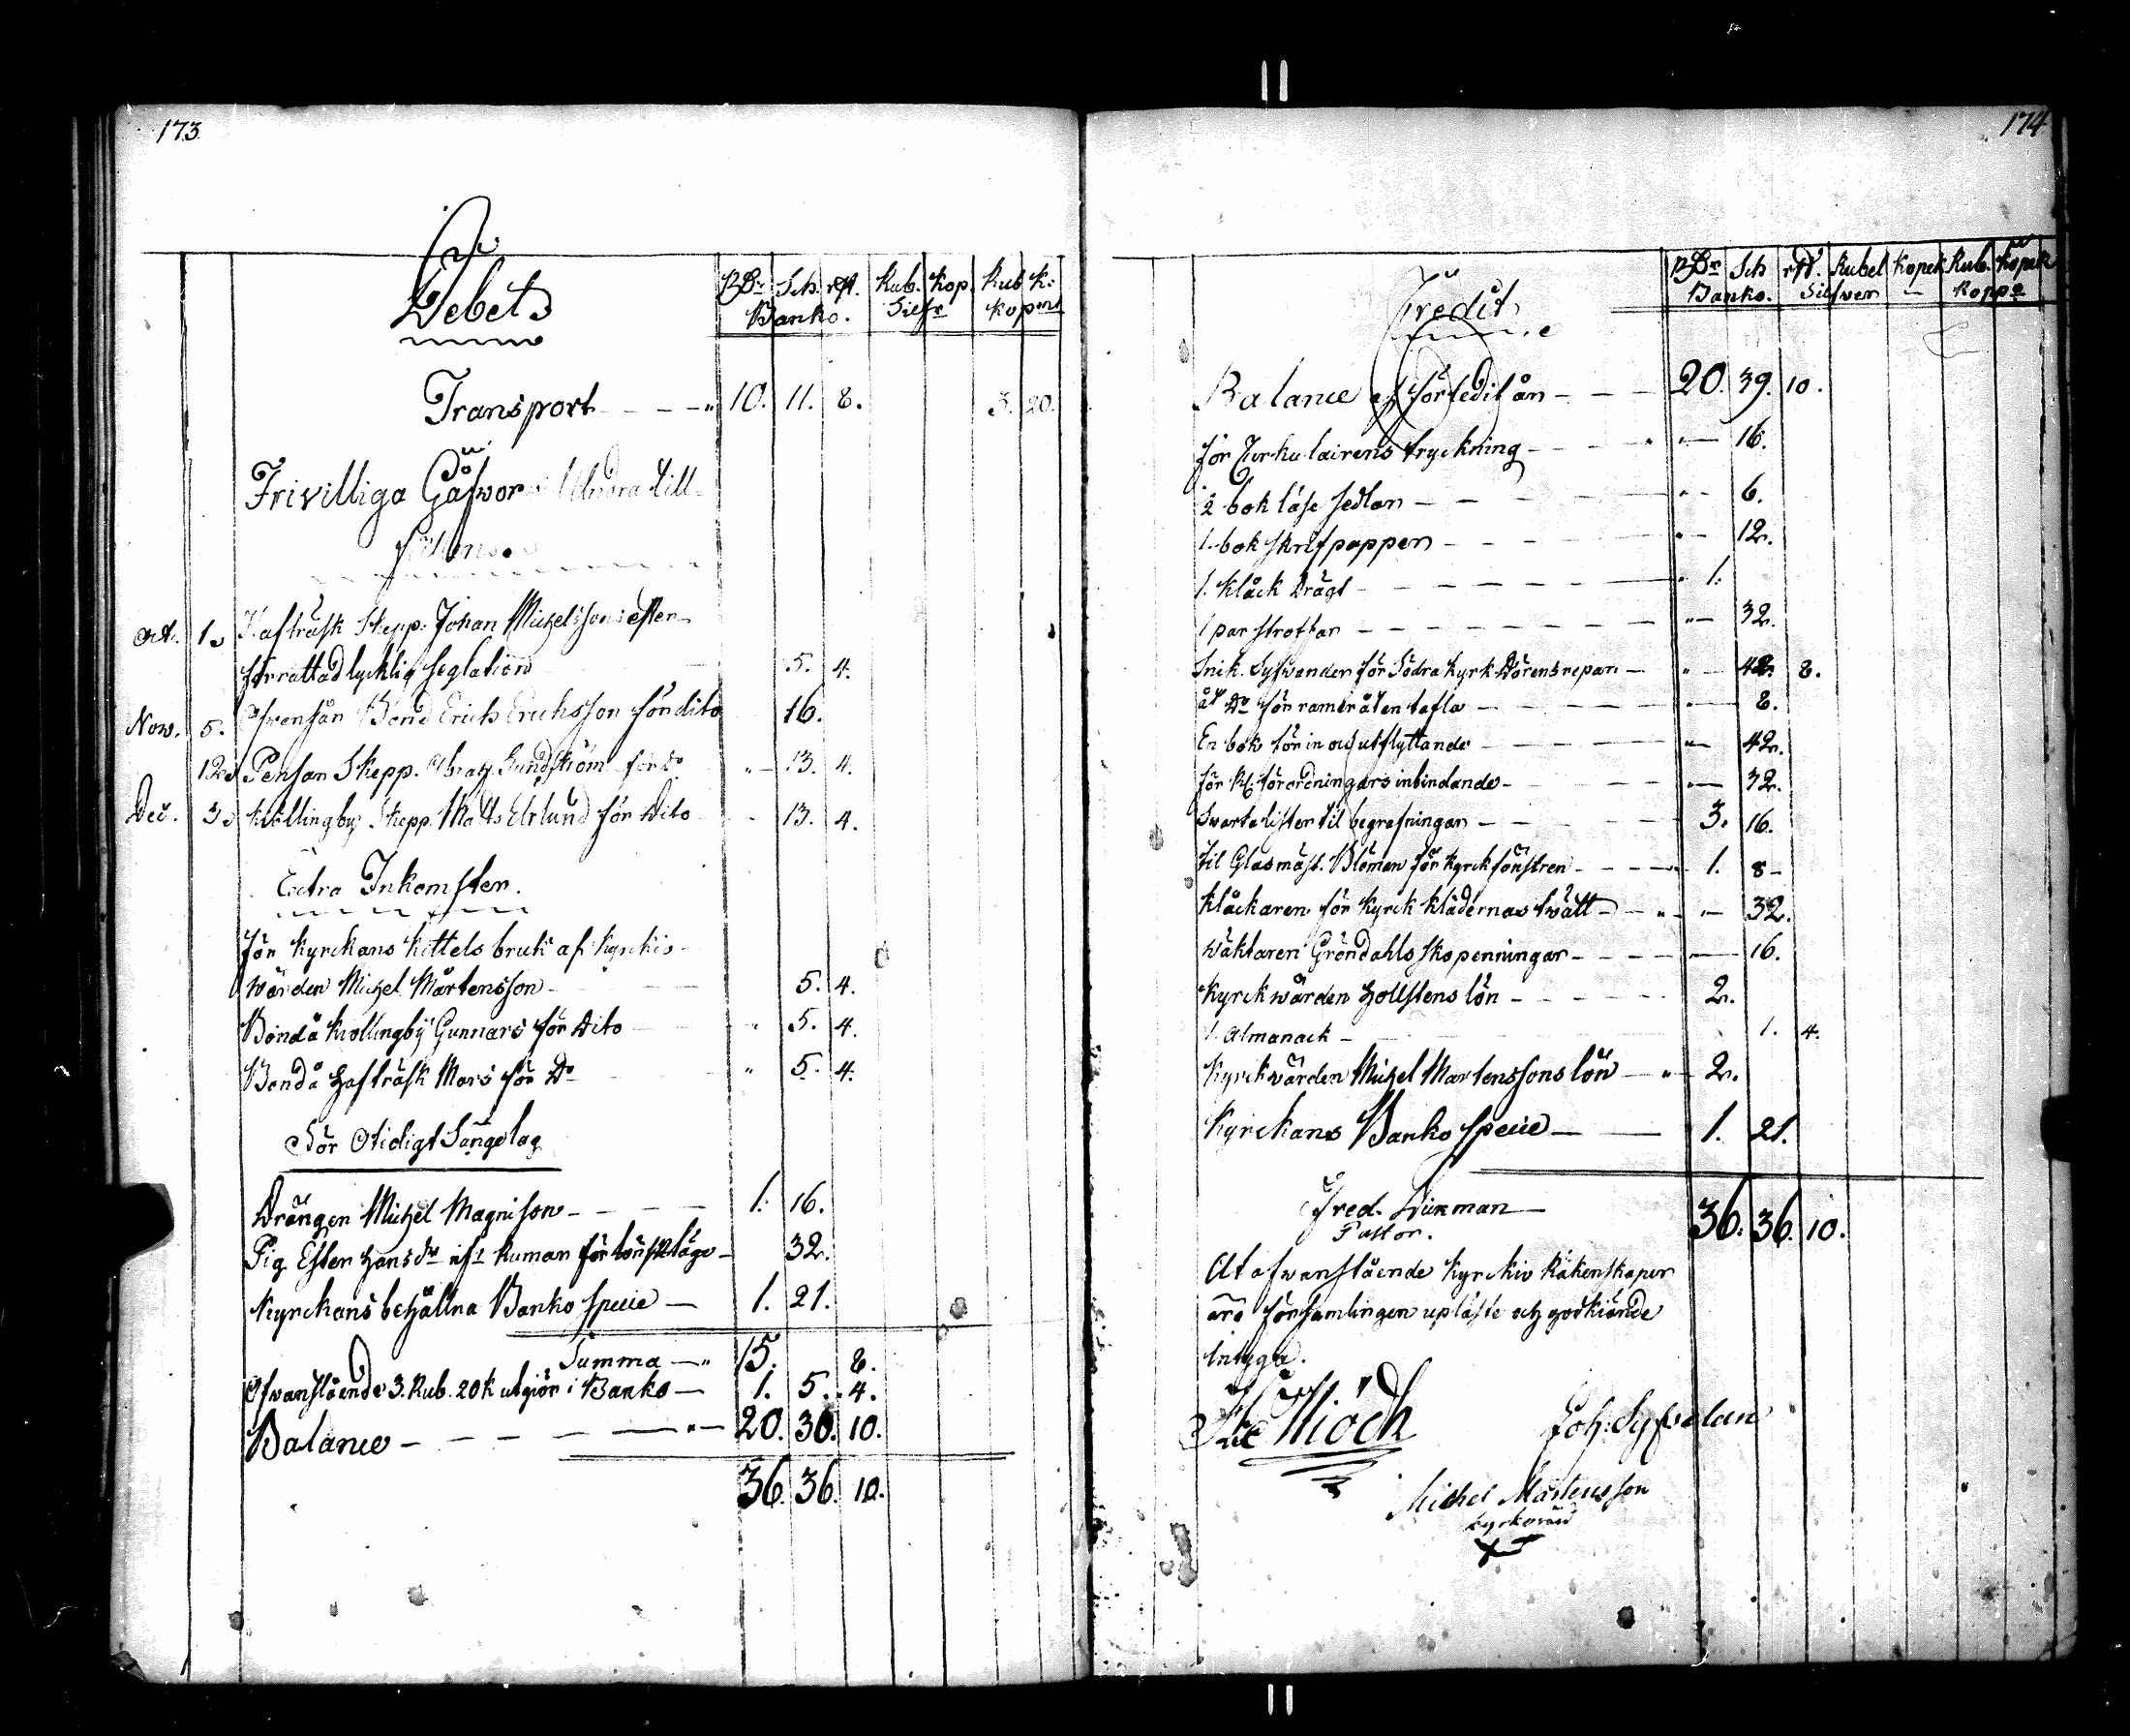 173
Debet
RDr Sch. rst. Rub. Kop. Kub K:
Banko. Silfr Koparnt
Transport - - - " 10. 11. 8. 3. 20.
Frivilliga Gåfvor Andra till-
fällen
Oct. 1. Hafträsk Skepp. Johan Michelsson efter
förrattad lycklig seglation 5. 4.
Nov. 5. Svensån Bond Erich Erichsson för dito 16.
12. Pensar Skepp. Abrah Sundström för Do " - 13. 4.
Dec. 3. Källingby Skepp. Matts Eklund för Dito - 13. 4.
Extra Inkomster.
för Kyrckans Kittels bruk af Kyrckio-
wärden Michel Mårtensson - 5. 4.
Bonda Källingby Gunnars för Dito " 5. 4.
Bonda Hafträsk Mars för Do " 5. 4.
För Otidigt Sängelag
Drängen Michel Magnisson - - - - 1. 16.
Pig. Ester Hansdr ifr Kumar för lönskläge - 32.
Kyrckans behållna Banko specie - 1. 21.
Summa - " 15. 8.
Ofwanstående 3. Rub. 20 K utgiör i Banko - 1. 5. 4.
Balance - - - - - " - 20. 30. 10.
36. 36. 10.
174
Credit
RDr Sch rst. Rubel Kopek Rub. Kopek
Banko. Silfwer - Koppr
Balance af förledit år - - - 20. 39. 10.
för Cirkulairens tryckning - - - " - 16.
2 bok läse sedlar - - - " - 6.
1. bok skrifpapper - - - - - " - 12.
1. Klåck Drägt - - - - - - " 1.
1 par stroppar - - - - - - - " - 32.
Snik. Sylvander för Södra Kyrk Dörens repar - " - 42. 8.
åt Do för ramar åt en tafla - - - - - " - 8.
En bok för in och utflyttande - - - - - " - 42.
för Kl förordningars inbindande - - - - " - 32.
Svarta lister til begrafningar - - - - 3. 16.
til Glasmäst. Blomen för Kyrck fönstren - - - - 1. 8 -
Klåckaren för Kyrck Klädernas twätt - - " - " - 32.
Wäktaren Gröndahls skopenningar - - - - - 16.
Kyrckwärden Hollstens lön - - - - - - 2.
1. Almanack - 1. 4.
Kyrckwärden Michel Martenssons lön - " - 2.
Kyrckans Banko specie - - 1. 21.
Fred. Dickman
Pastor.
36. 36. 10.
At ofwanstående Kyrckio Räkenskaper
äro församlingen upläste och godkiände
intyga.
Joh: Sylvelan
Michel Mårtensson
kyrkovärd